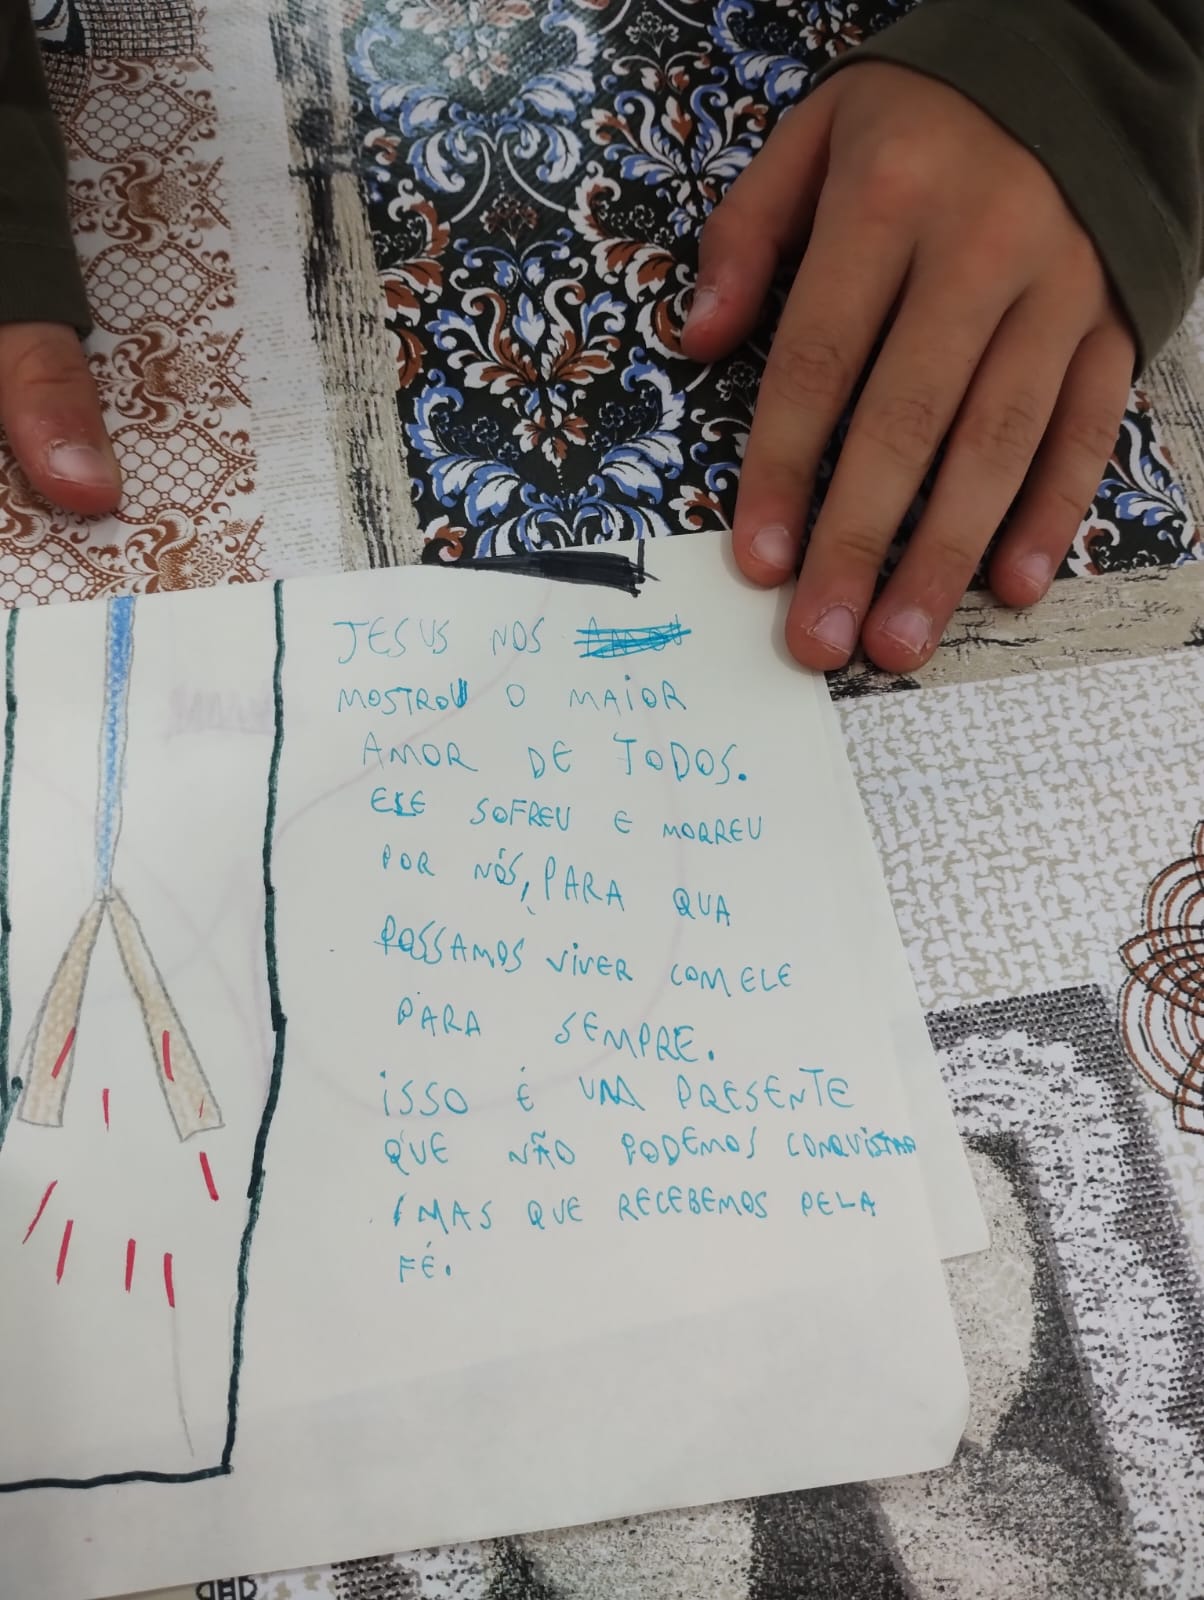 JESUS NOS
MOSTROU O MAIOR
AMOR DE TODOS.
ELE SOFREU E MORREU
POR NÓS, PARA QUA
POSSAMOS VIVER COM ELE
PARA SEMPRE.
ISSO É UM PRESENTE
QUE NÃO PODEMOS CONQUISTAR
, MAS QUE RECEBEMOS PELA
FÉ.